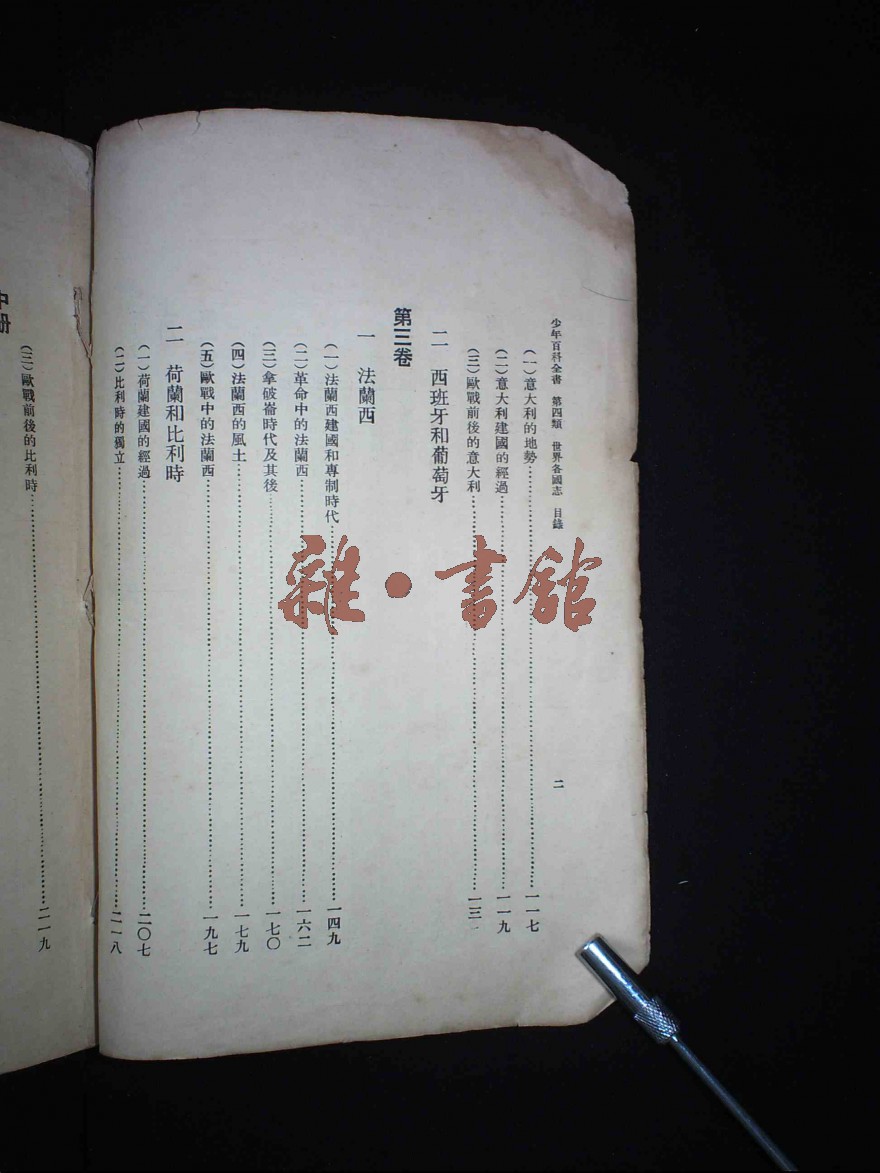 少年百科全書 第四類 世界各國志 目錄 二
(一)意大利的地勢……一一七
(二)意大利建國的經過……一一九
(三)歐戰前後的意大利……一三
二 西班牙和葡萄牙
第三卷
一 法蘭西
(一)法蘭西建國和專制時代……一四九
(二)革命中的法蘭西……一六二
(三)拿破崙時代及其後……一七〇
(四)法蘭西的風土……一七九
(五)歐戰中的法蘭西……一九七
二 荷蘭和比利時
(一)荷蘭建國的經過……二〇七
(二)比利時的獨立……二一八
(三)歐戰前後的比利時……二一九
中册
雜·書館